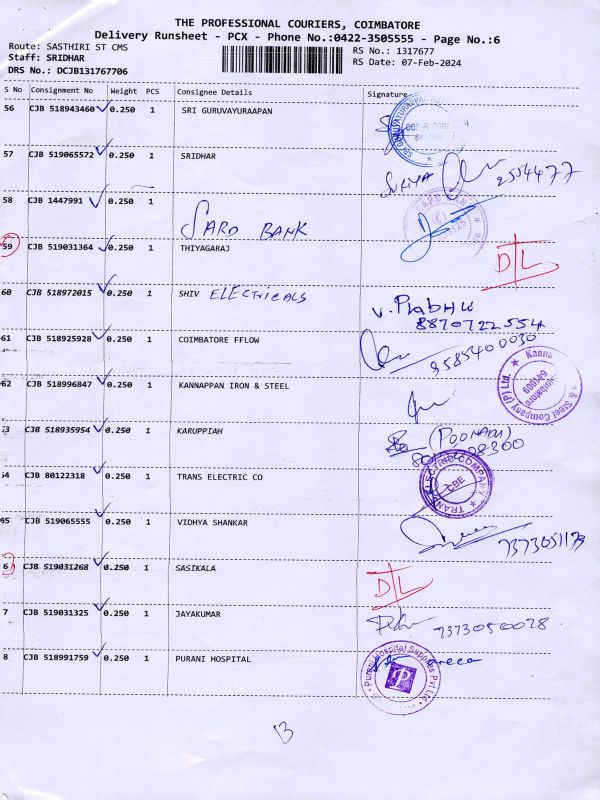 THE PROFESSIONAL COURIERS, COIMBATORE
Delivery Runsheet - PCX - Phone No.:0422-3505555 - Page No.:6
Route: SASTHIRI ST CMS
RS No.: 1317677
Staff: SRIDHAR
RS Date: 07-Feb-2024
DRS No.: DCJB131767706
S No Consignment No Weight PCS Consignee Details Signature
56 CJB 518943460 0.250 1 SRI GURUVAYURAAPAN
57 CJB 519065572 0.250 1 SRIDHAR
SURIYA 2554477
58 CJB 1447991 0.250 1
SARD BANK
59 CJB 519031364 0.250 1 THIYAGARAJ
D/L
60 CJB 518972015 0.250 1 SHIV ELECTRICALS
V. Prabhu
8870722554
61 CJB 518925928 0.250 1 COIMBATORE FFLOW
9585400030
62 CJB 518996847 0.250 1 KANNAPPAN IRON & STEEL
Kanna
& Steel Company (P) Ltd.
3 CJB 518935954 0.250 1 KARUPPIAH
(POONADU)
4 CJB 80122318 0.250 1 TRANS ELECTRIC CO
TRANS ELECTRIC COMPANY
CBE
65 CJB 519065555 0.250 1 VIDHYA SHANKAR
7373051173
6 CJB 519031268 0.250 1 SASIKALA
D/L
7 CJB 519031325 0.250 1 JAYAKUMAR
7373050028
8 CJB 518991759 0.250 1 PURANI HOSPITAL
Purani Hospital Supplies Pvt Ltd
13